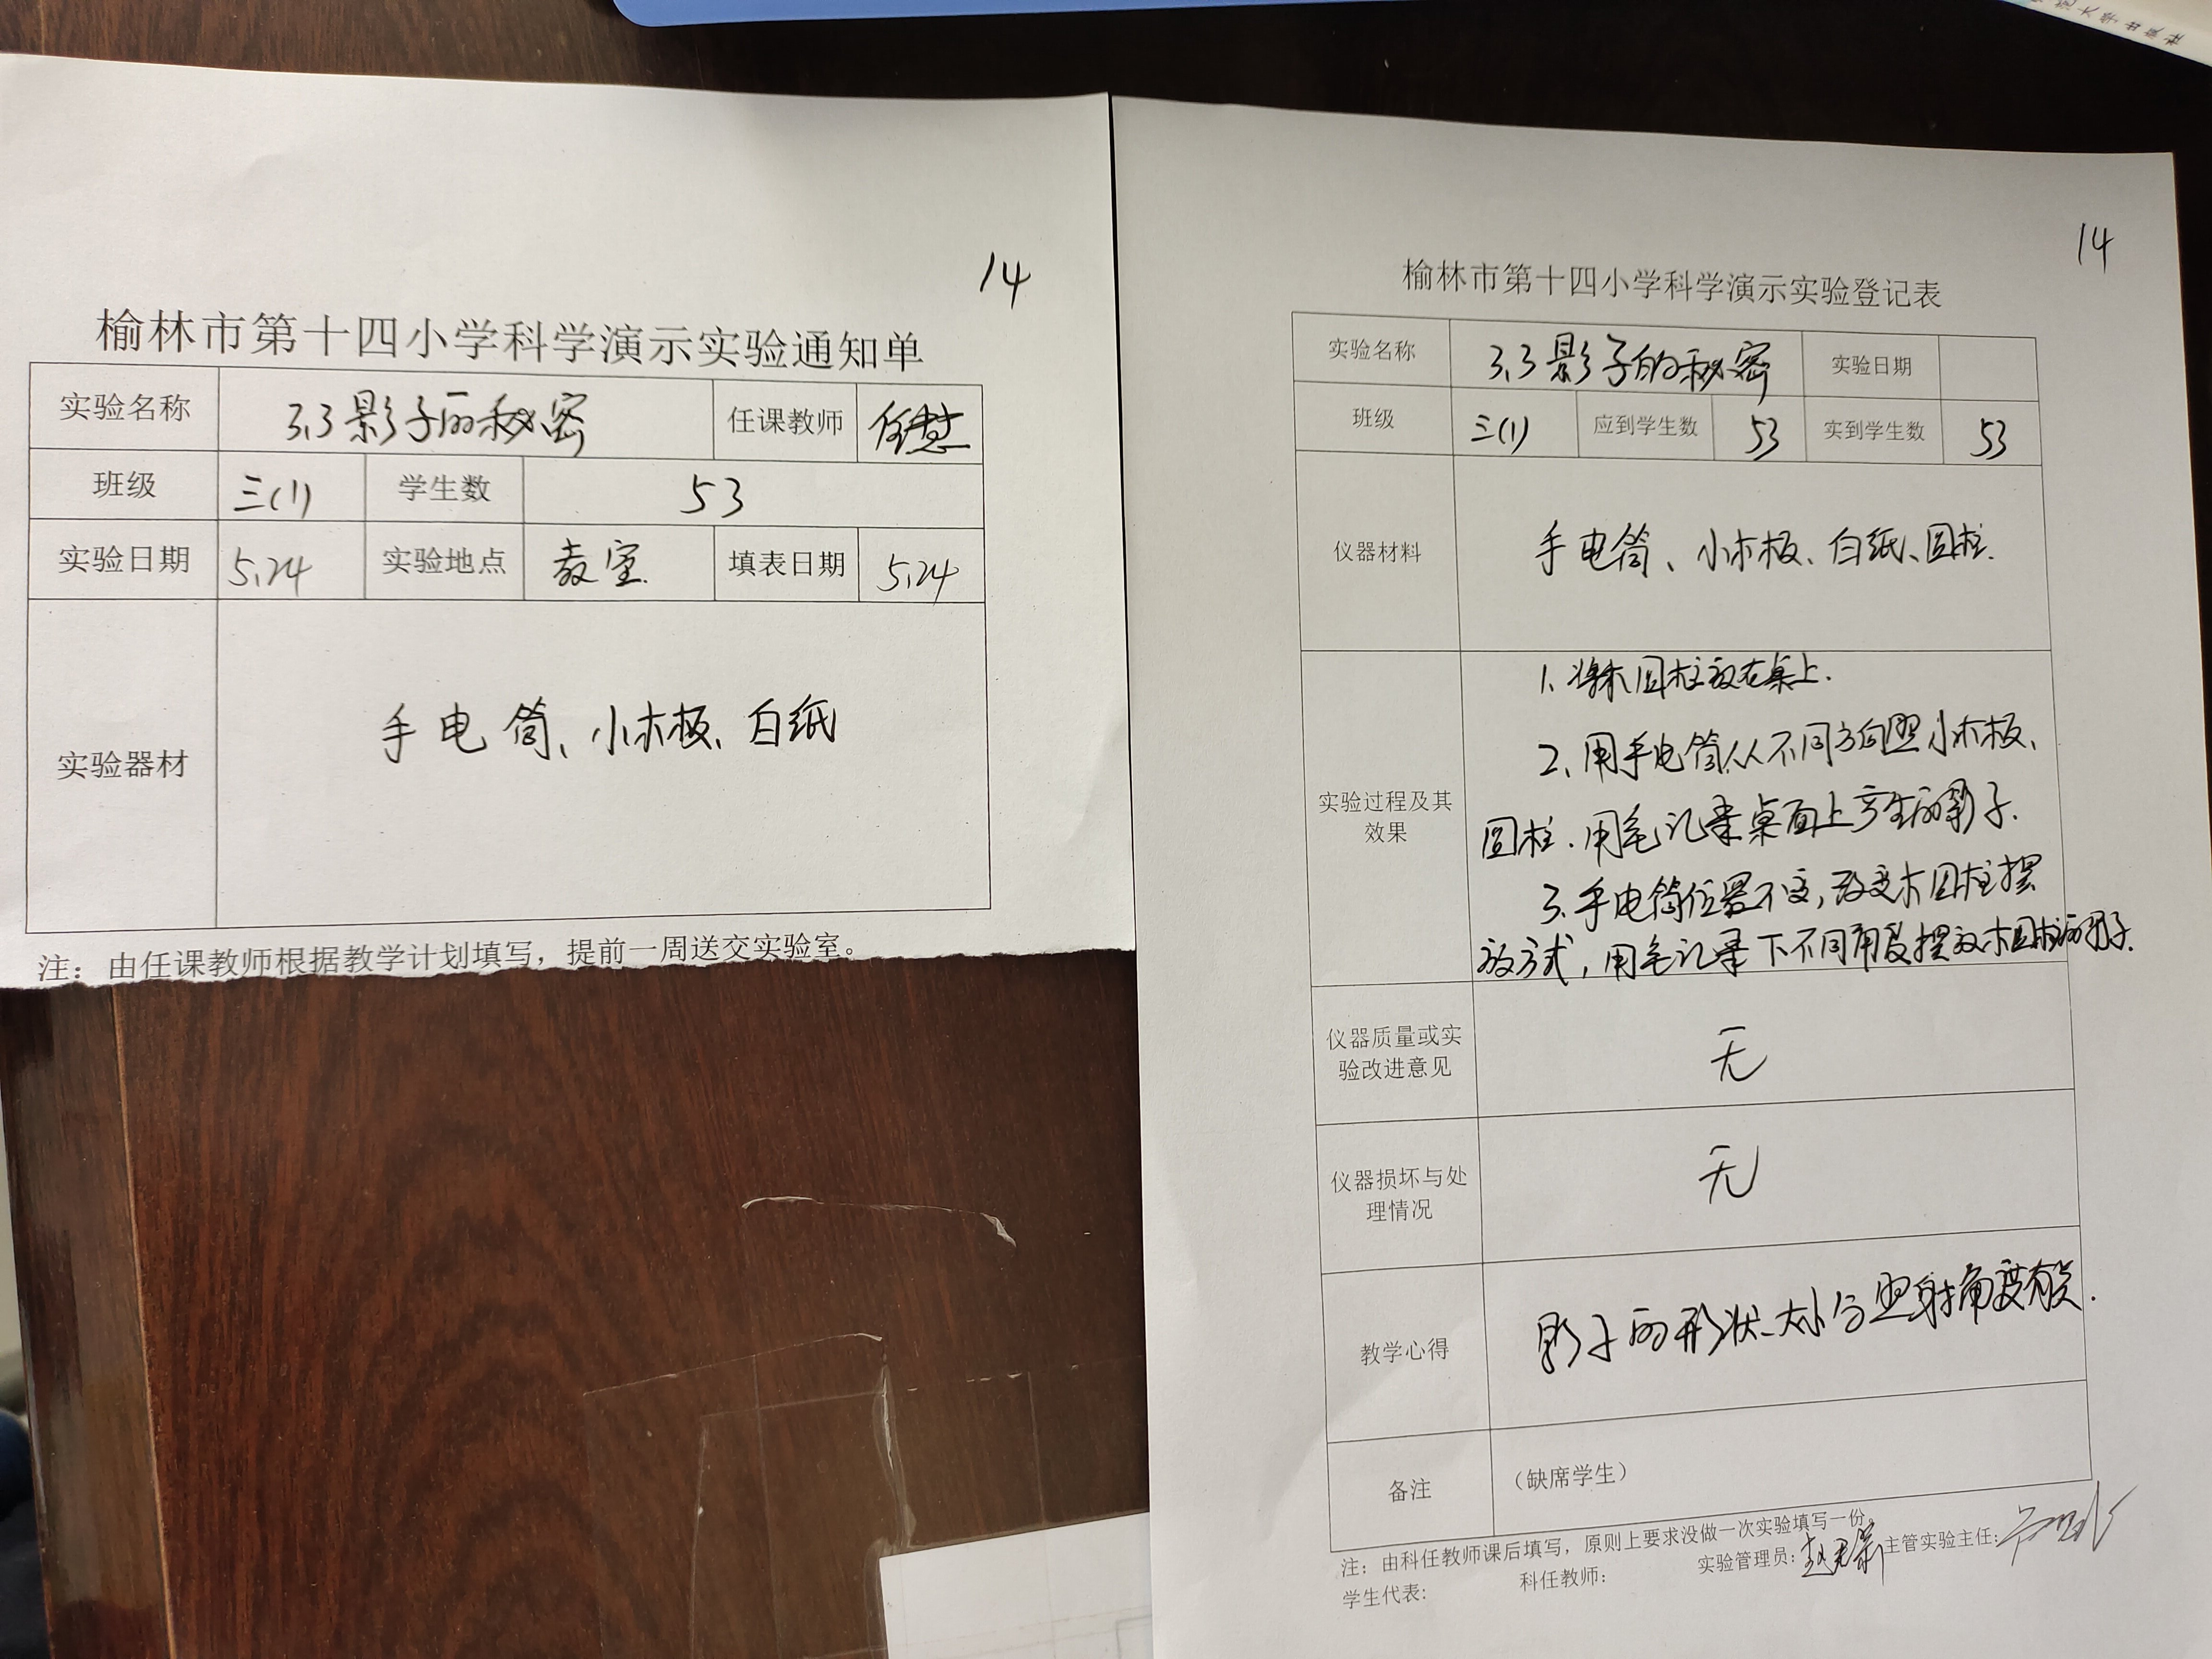 范大学出版社
14
榆林市第十四小学科学演示实验通知单
实验名称 3.3影子的秘密 任课教师 任慧
班级 三(1) 学生数 53
实验日期 5.24 实验地点 教室. 填表日期 5.24
实验器材 手电筒、小木板、白纸
注：由任课教师根据教学计划填写，提前一周送交实验室。
14
榆林市第十四小学科学演示实验登记表
实验名称 3.3影子的秘密 实验日期
班级 三(1) 应到学生数 53 实到学生数 53
仪器材料 手电筒、小木板、白纸、圆柱.
实验过程及其效果
1. 将木圆柱放在桌上.
2、用手电筒从不同方向照小木板、
圆柱.用笔记录桌面上产生的影子.
3.手电筒位置不变,改变木圆柱摆
放方式,用笔记录下不同角度摆放木圆柱的影子.
仪器质量或实验改进意见 无
仪器损坏与处理情况 无
教学心得 影子的形状、大小与照射角度有关.
备注 （缺席学生）
注：由科任教师课后填写，原则上要求没做一次实验填写一份。
学生代表: 科任教师: 实验管理员: 主管实验主任: